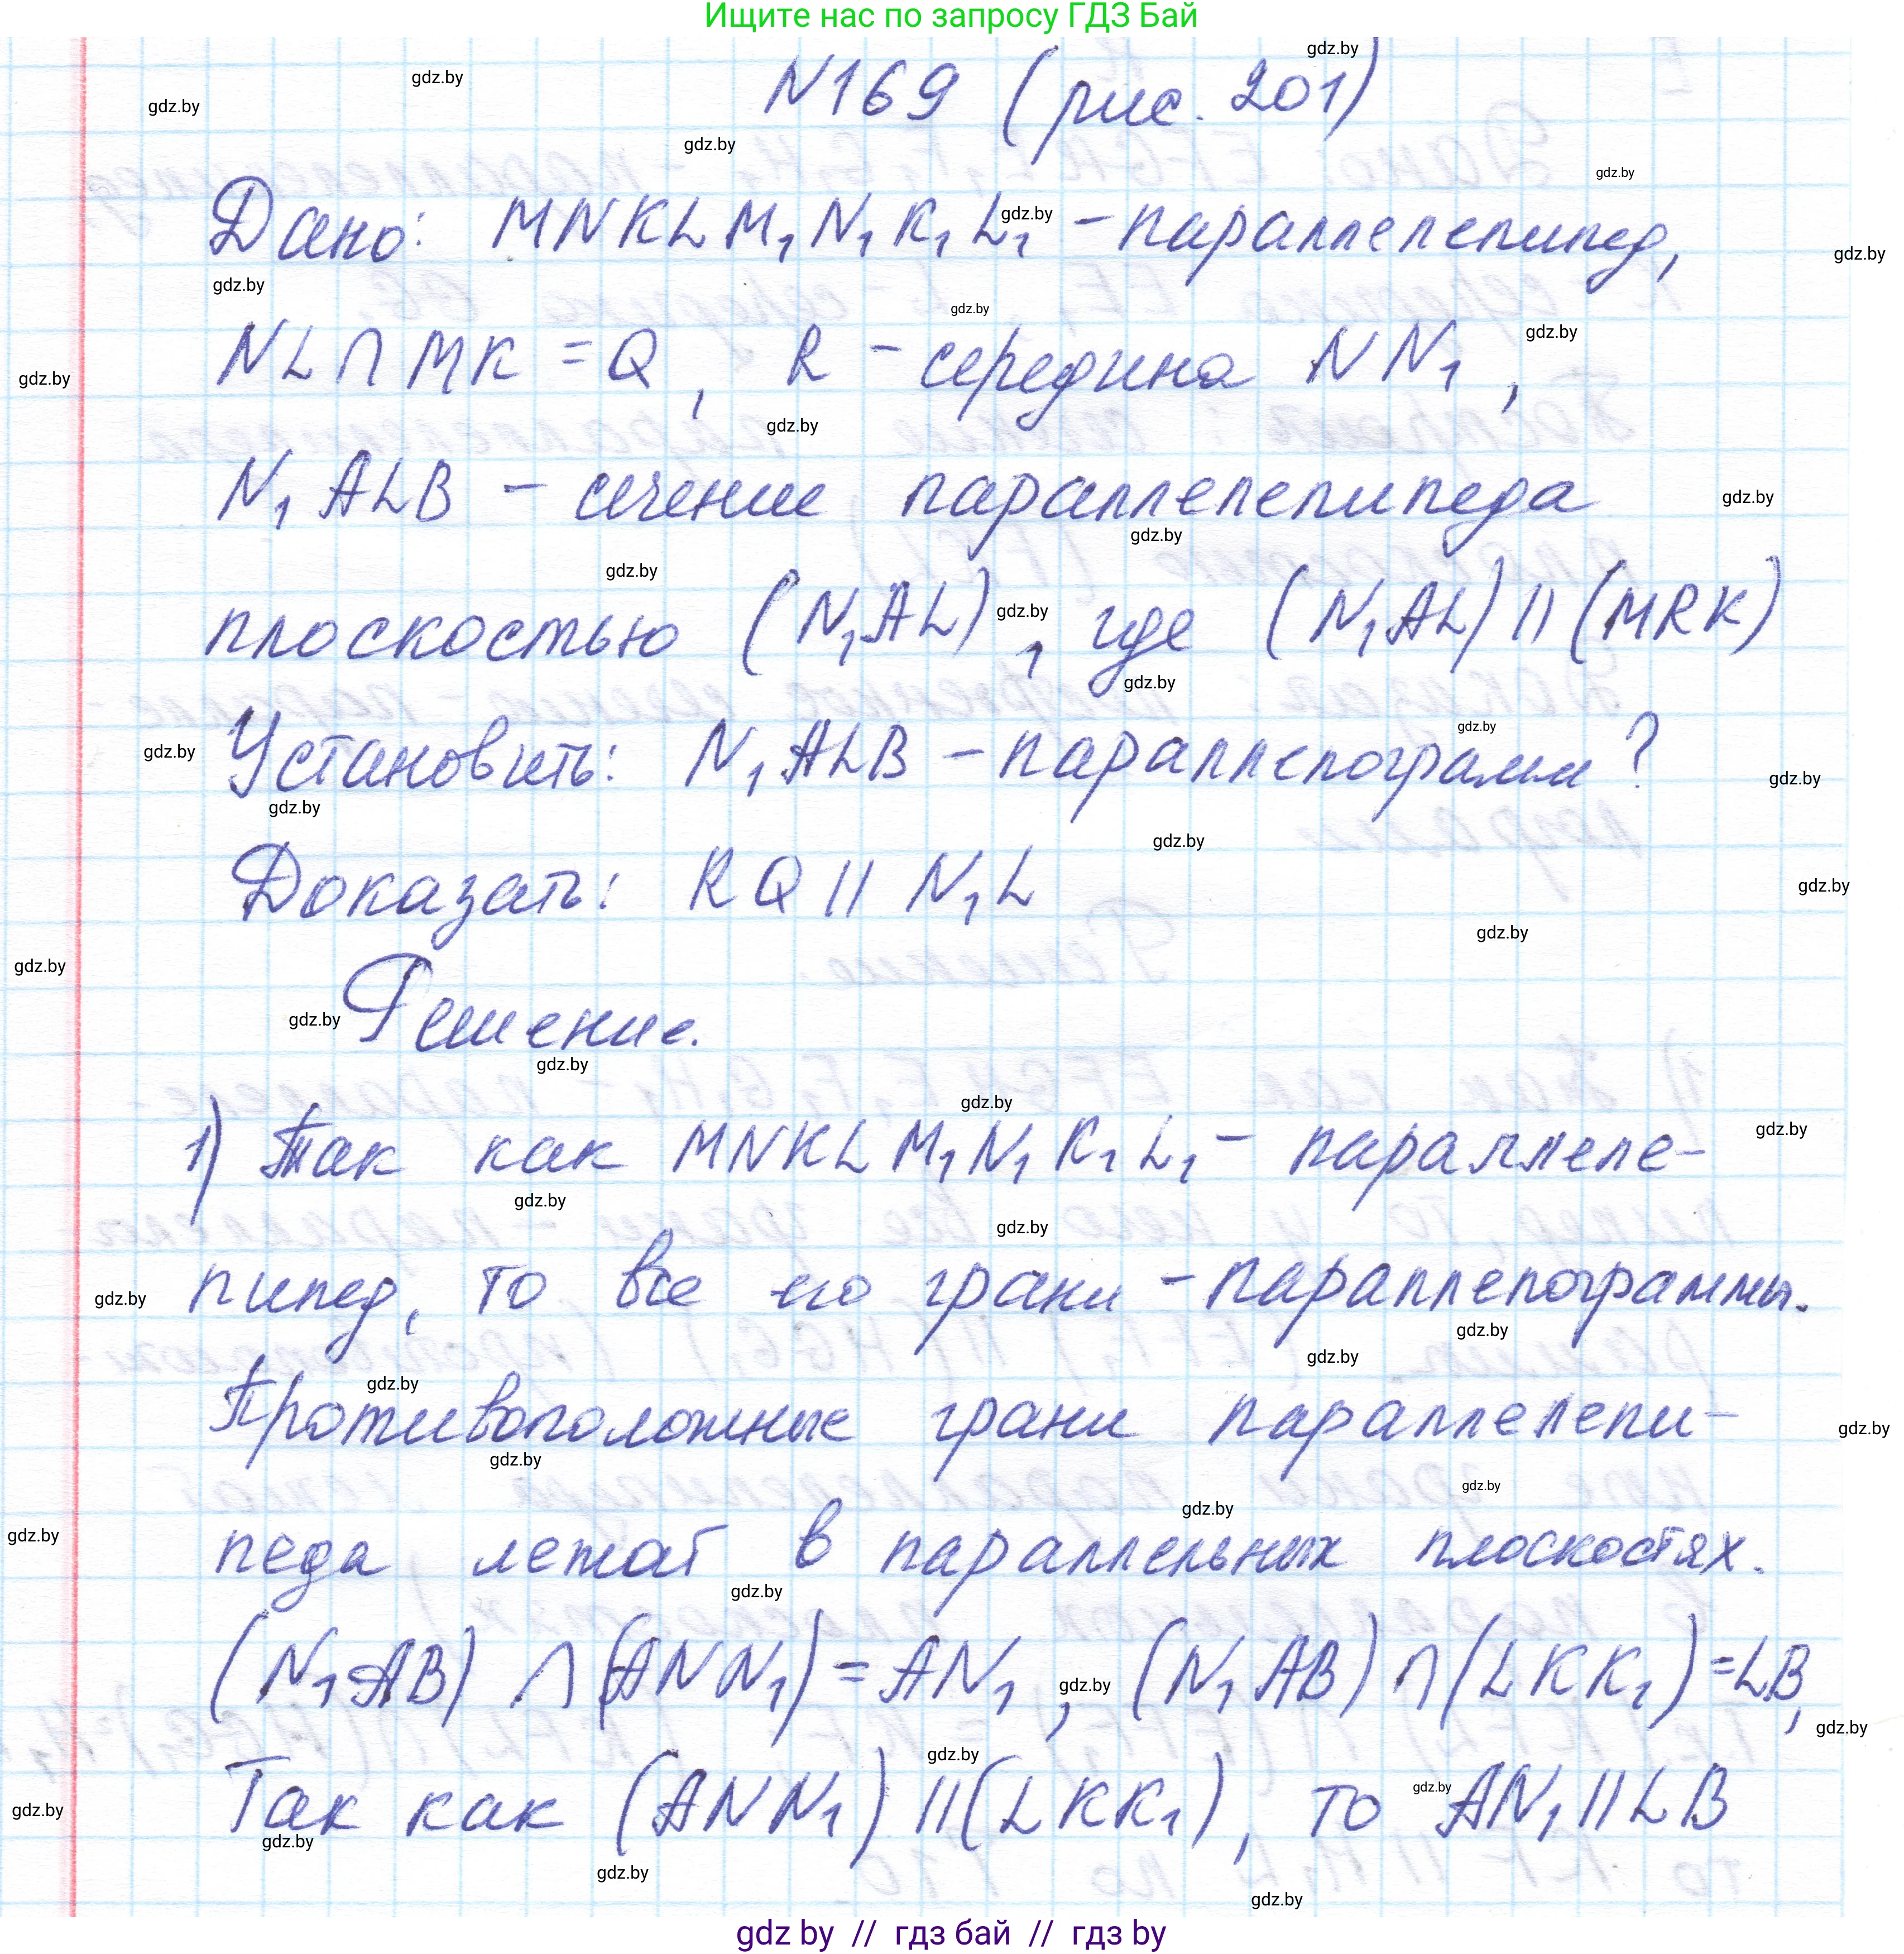 Ищите нас по запросу ГДЗ Бай
N169 (рис. 201)
Дано: MNKLM₁N₁K₁L₁ - параллелепипед,
NL∩MK = Q, R - середина NN₁,
N₁ALB - сечение параллелепипеда
плоскостью (N₁AL), где (N₁AL) || (MRK)
Установить: N₁ALB - параллелограмм?
Доказать: RQ || N₁L
Решение.
1) Так как MNKLM₁N₁K₁L₁ - параллеле-
пипед, то все его грани - параллелограммы.
Противоположные грани параллелепи-
педа лежат в параллельных плоскостях.
(N₁AB) ∩ (ANN₁) = AN₁, (N₁AB) ∩ (LKK₁) = LB,
Так как (ANN₁) || (LKK₁), то AN₁ || LB
gdz by // гдз бай // гдз by